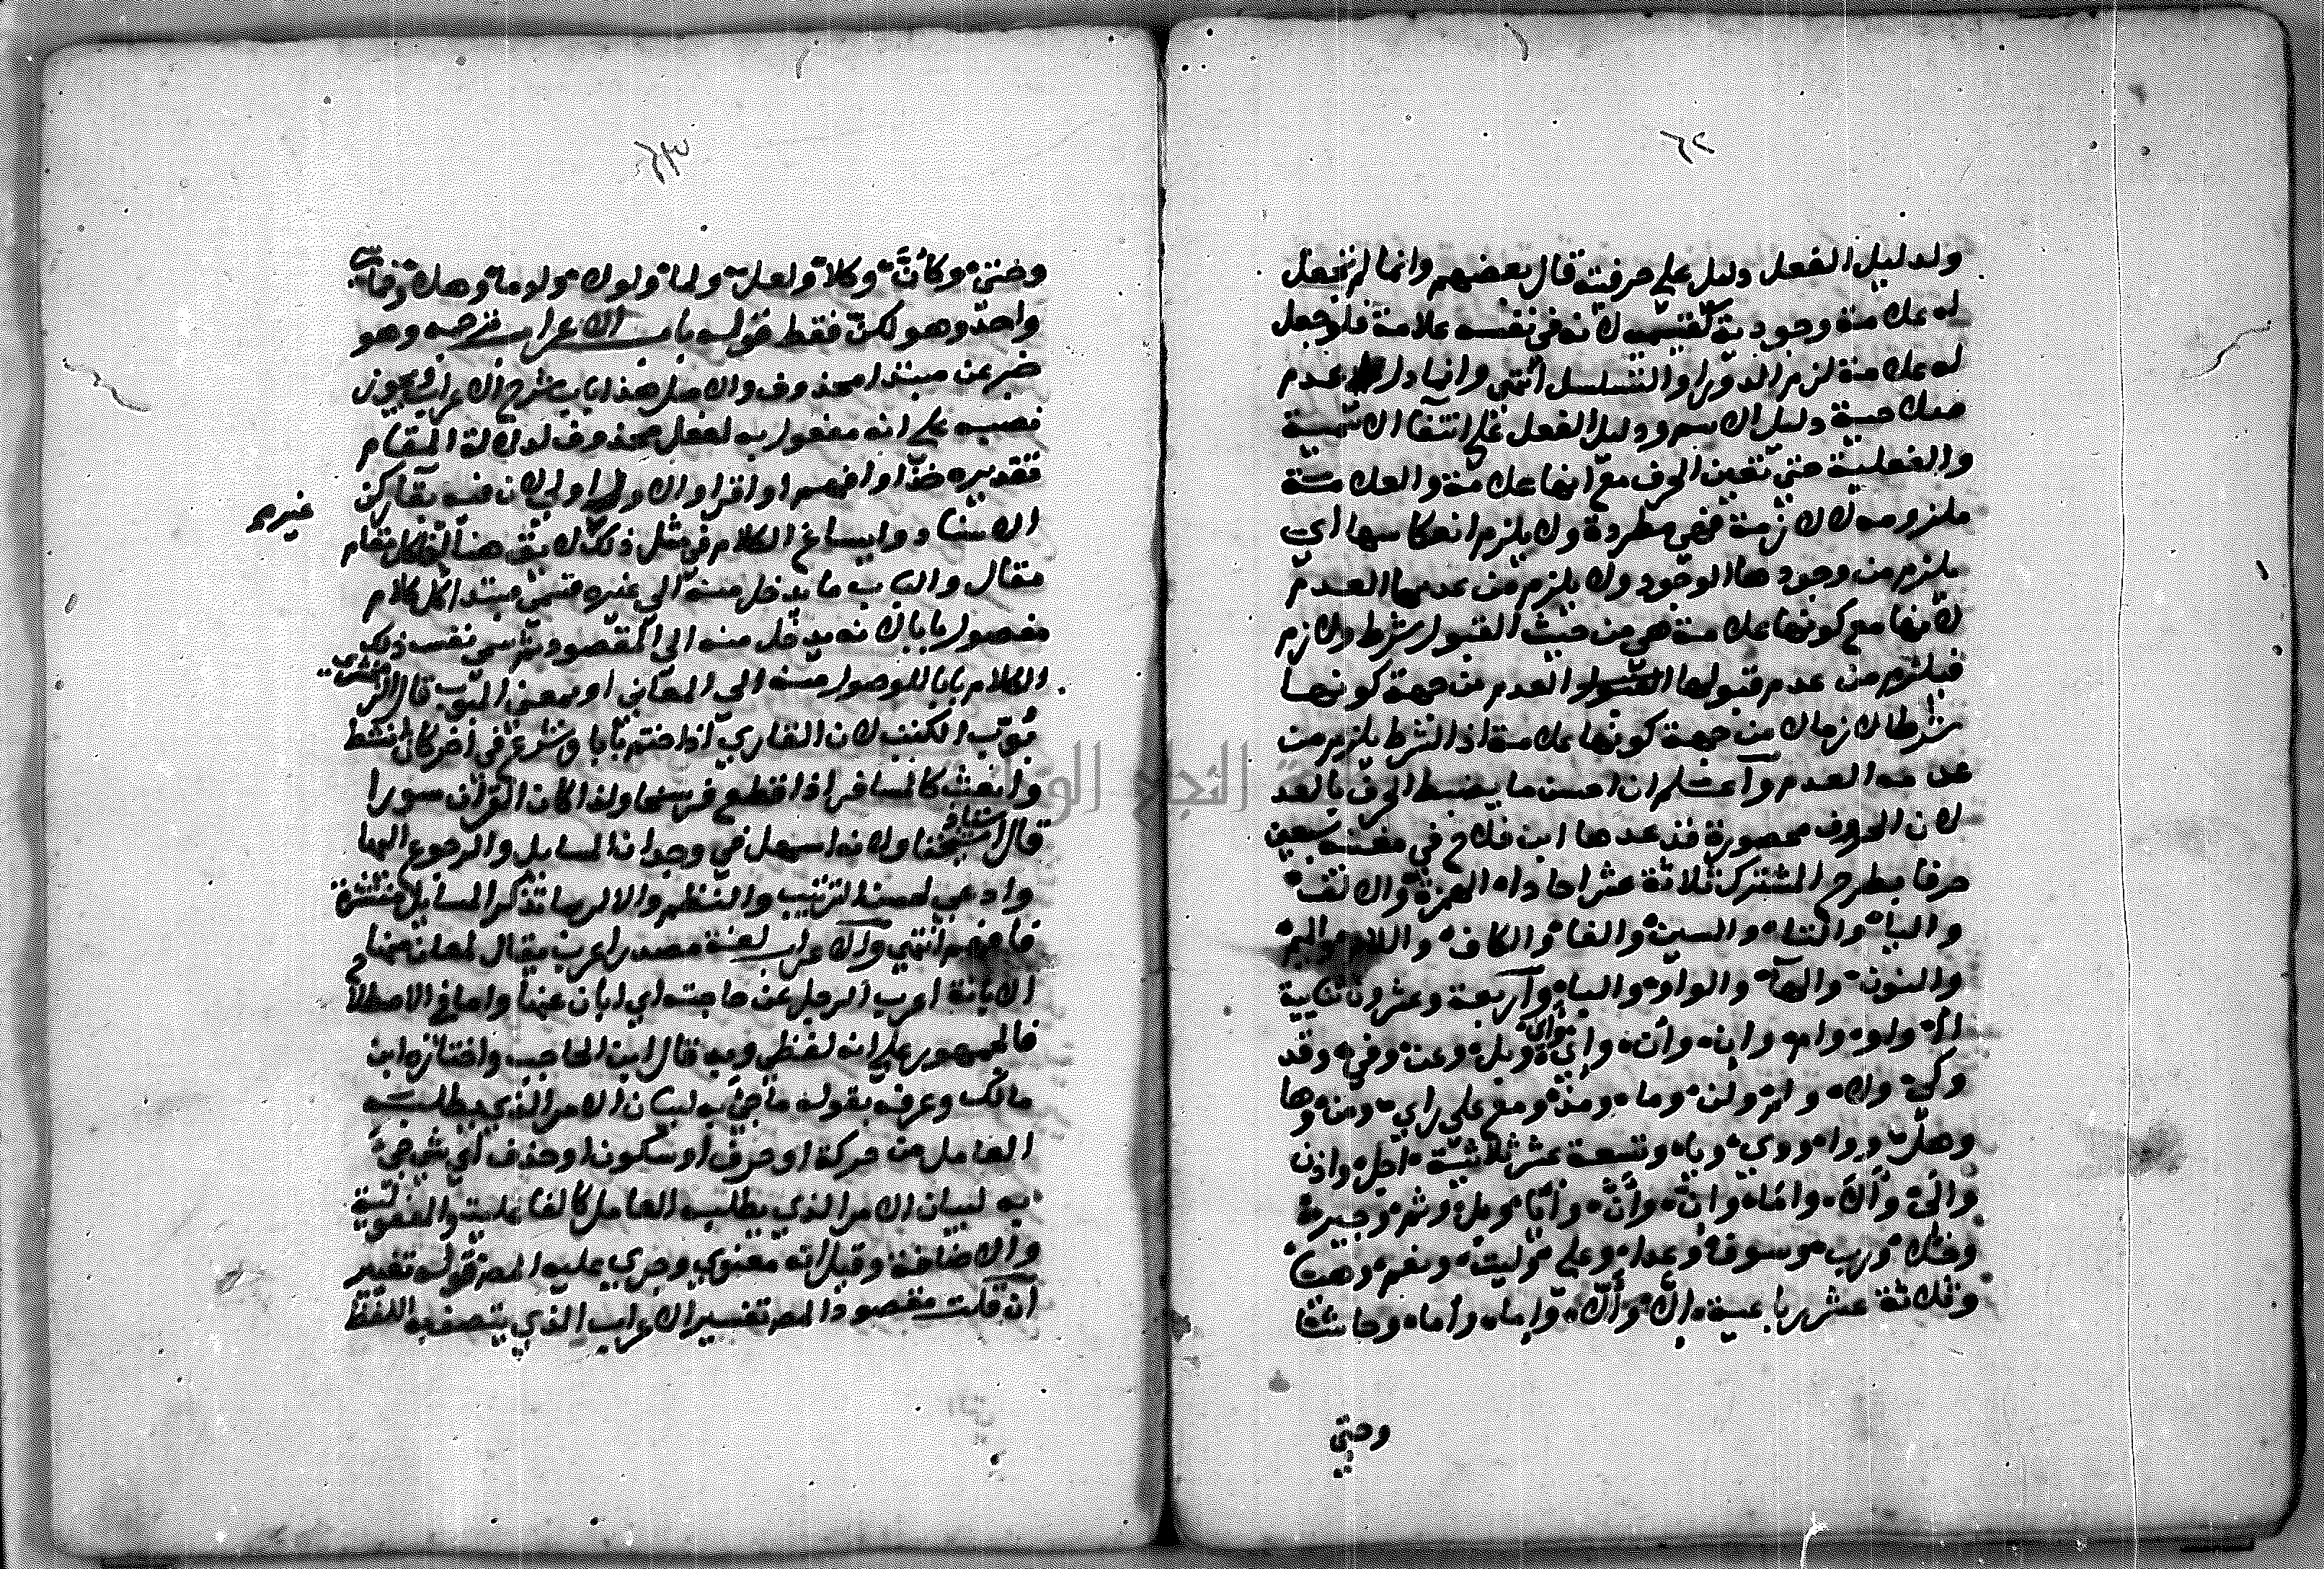 ٦٢
ولدليل الفعل دليل على حرفيته قال بعضهم وانما لم نجعل
له علامة وجودية كقسيميه لانه في نفسه علامة فلو جعل
له علامة لزم الدور او التسلسل انتهى وانما دل عدم
صلاحية دليل الاسم ودليل الفعل على انتفا الاسمية
والفعلية حتى تعين الحرف مع انها علامة والعلامة
ملزومه لا لازمة فهي مطردة ولا يلزم انعكاسها اي
يلزم من وجودها الوجود ولا يلزم من عدمها العدم
لانها مع كونها علامة هي من حيث القبول شرط ولازم
فيلزم من عدم قبولها العدم من جهة كونها
شرطا لازما لا من جهة كونها علامة اذ الشرط يلزم من
عدمه العدم واعلم ان احسن ما يضبط الحرف بالعد
لان الحروف محصورة فقد عدها ابن فلاح في مغنيه سبعين
حرفا بطرح المشترك ثلاثة عشر احادا الهمزة والالف
والباء والتاء والسين والفا والكاف واللام والميم
والنون والهآ والواو والياء واربعة وعشرون ثنايية
ال واو وام وان وأن واي وأي وبل وعن وفي وقد
وكي ولا ولم ولن وما ومذ ومع على راي ومن وها
وهل ووا ووي ويا وتسعة عشر ثلاثية اجل واذن
والى وألا واما وان وأن وأيا وبلى وثم وجير
وخلا ورب وسوف وعدا وعلى وليت ونعم وهيا
وثلاثة عشر رباعية إلا وألا واما وأما وحاشا
وحتى
٦٣
وحتى وكأن وكلا ولعل ولما ولولا ولوما وهلا وخماسي
واحد وهو لكن فقط قوله باب الاعراب شرحه وهو
خبر عن مبتدا محذوف والاصل هذا باب شرح الاعراب ويجوز
نصبه على انه مفعول به لفعل محذوف لدلالة المقام
فقديره خذ او افهم او اقرا والاول اولى لان فيه بقا ركن
الاسناد وايساغ الكلام في مثل ذلك لايق هنا لكل مقام
غيرهم
مقال والباب ما يدخل منه الى غيره فتسمى مبتدا كل كلام
مفصول بابا لانه يدخل منه الى المقصود ثم سمي نفس ذلك
الكلام بابا للوصول منه الى المعاني او بمعنى المبوب قال الزمخشري
بوب الكتب لان القاري اذا ختم بابا وشرع في اخر كان انشط
وابعث كالمسافر اذا قطع فرسخا ولذا كان القران سورا
قال استاذ شيخنا ولانه اسهل في وجدان المسايل والرجوع اليها
وادعى لحسن الترتيب والنظم والا لربما تذكر المسايل منتشرة
فافهم انتهى والاعراب لغة مصدر اعرب يقال لمعان منها
الابانة اعرب الرجل عن حاجته اي ابان عنها واما في الاصطلاح
فالجمهور على انه لفظي وبه قال ابن الحاجب واختاره ابن
مالك وعرفه بقوله ما جيء به لبيان الامر الذي يطلبه
العامل من حركة او حرف او سكون او حذف اي شي جيء
به لبيان الامر الذي يطلبه العامل كالفاعلية والمفعولية
والاضافة وقيل انه معنوي وجرى عليه المص قوله تغيير
ان قلت مقصود المص تفسير الاعراب الذي يتصف به اللفظ